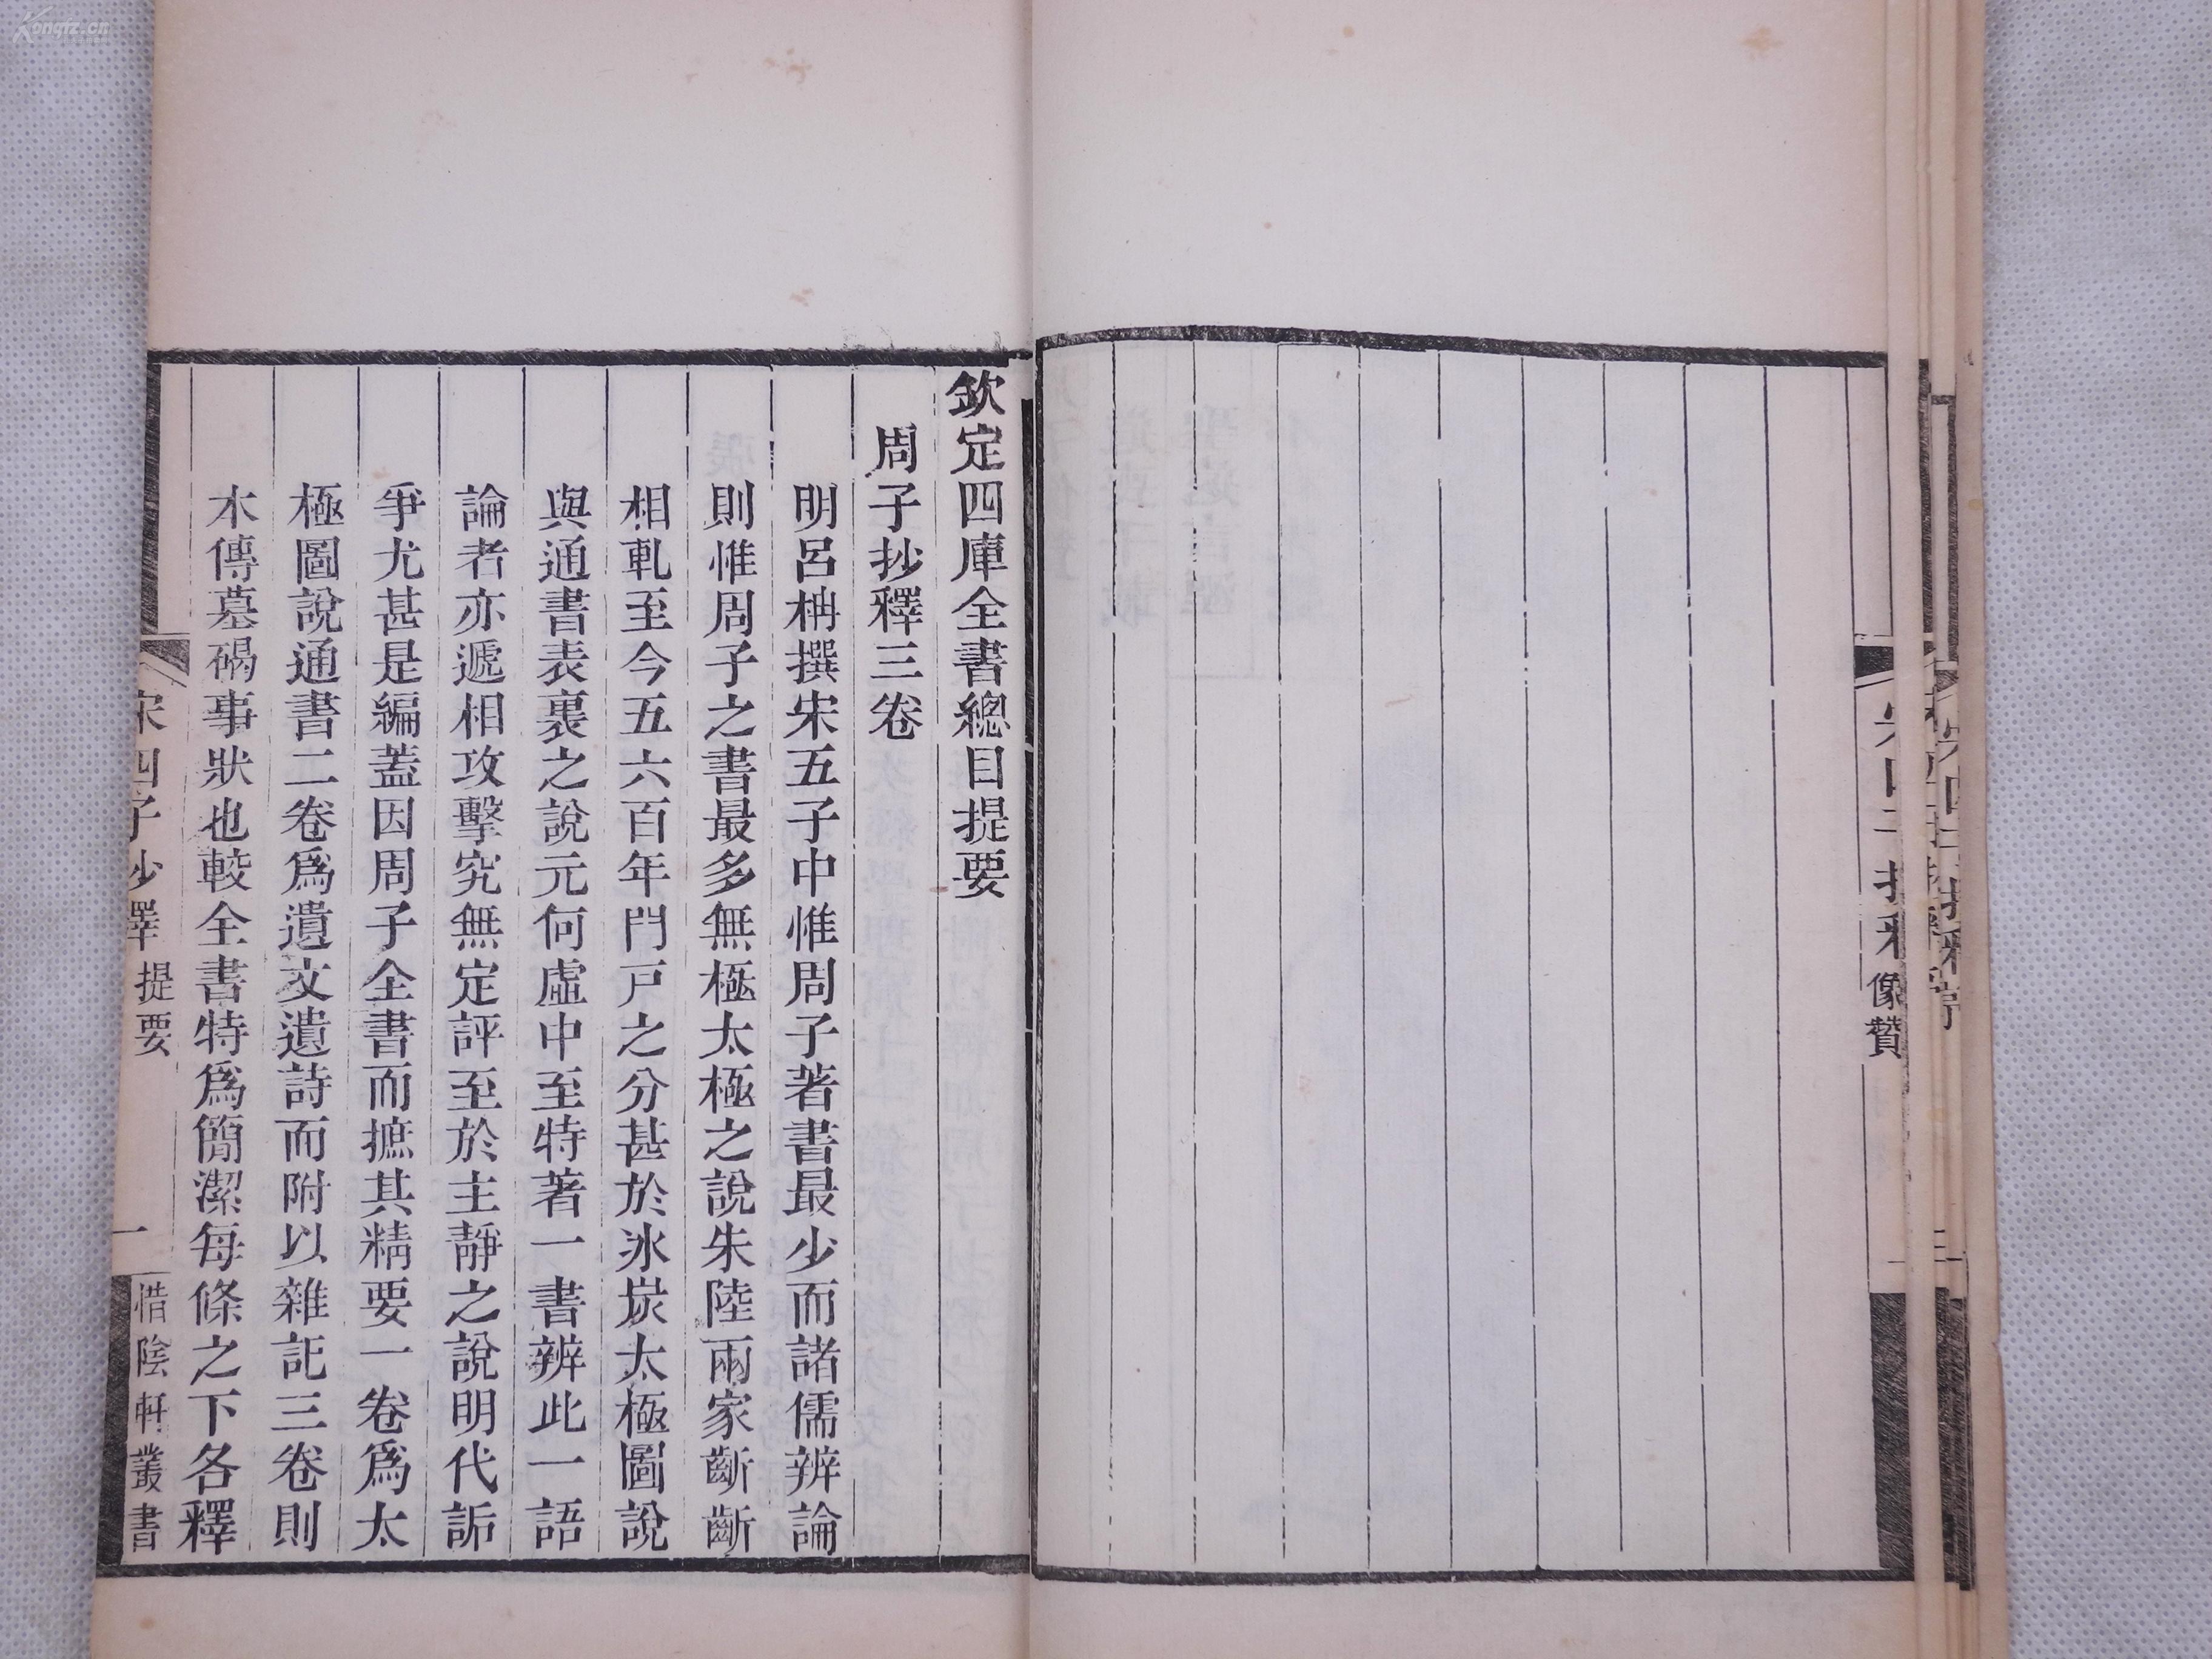 欽定四庫全書總目提要
周子抄釋三卷
明呂柟撰宋五子中惟周子著書最少而諸儒辨論
則惟周子之書最多無極太極之說朱陸兩家齗齗
相軋至今五六百年門戸之分甚於冰炭太極圖說
與通書表裏之說元何虛中至特著一書辨此一語
論者亦遞相攻擊究無定評至於主靜之說明代詬
爭尤甚是編蓋因周子全書而摭其精要一卷爲太
極圖說通書二卷爲遺文遺詩而附以雜記三卷則
本傳墓碣事狀也較全書特爲簡潔每條之下各釋
宋四子抄釋 提要 一 惜陰軒叢書
像贊
Kongfz.cn